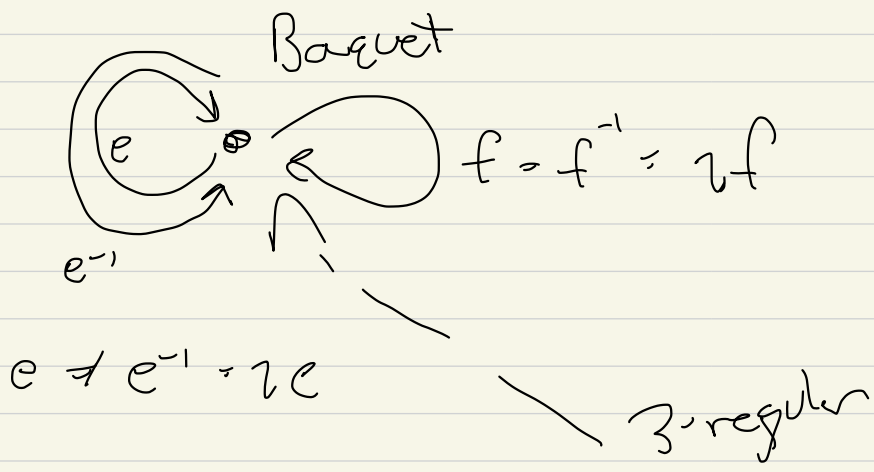 Boquet
e
f = f⁻¹ = ηf
e⁻¹
e ≠ e⁻¹ = ηe
3-regular